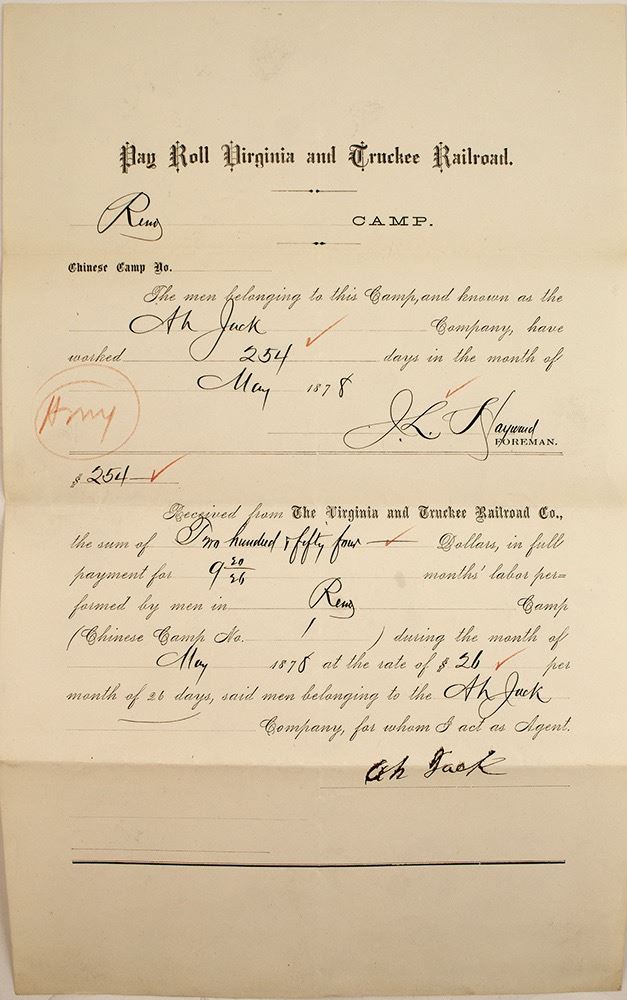 Pay Roll Virginia and Truckee Railroad.
Reno CAMP.
Chinese Camp No.
The men belonging to this Camp, and known as the
Ah Jack Company, have
worked 254 days in the month of
May 1878
J. L. Hayward
FOREMAN.
$ 254
Received from The Virginia and Truckee Railroad Co.,
the sum of Two hundred & fifty four Dollars, in full
payment for 9 20/26 months' labor per=
formed by men in Reno Camp
(Chinese Camp No. 1 ) during the month of
May 1878 at the rate of $ 26 per
month of 26 days, said men belonging to the Ah Jack
Company, for whom I act as Agent.
Ah Jack